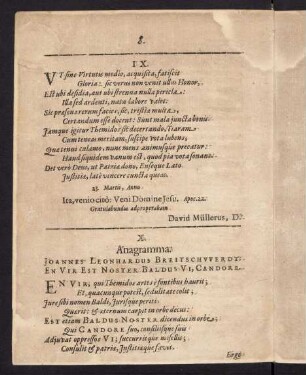 8.
IX.
VT sine Virtutis medio, acquisita, fatiscit
Gloria: sic verus non venit ullus Honor,
Est ubi desidia, aut ubi strenna nulla pericla:
Illa sed ardenti, nata labore valet:
Sic præsens rerum facies; sic, tristia multa
Certandum esse docent: Sunt mala juncta bonis.
Jamque igitur Themidos sit decertando, Tiaram
Cum teneas meritam, suscipe vota lubens,
Quæ tenui calamo, nunc mens animusque precatur:
Haud siquidem vanum est, quod pia vota sonant.
Det verò Deus, ut Patria dono, Eusque Lato
Justitiæ, læte vincere cuncta queas.
23. Martii, Anno
Ita, venio citò: Veni Domine Jesu. Apoc. 22.
Gratulabundus adproperabam
David Müllerus, D.
X.
Anagramma:
JOANNES LEONHARDUS BREITSCHVVERDT:
EN VIR EST NOSTER BALDUS VI, CANDORE.
EN VIR; qui Themidos artes è fontibus haurit;
Et, quacunque potest, sedulitate colit;
Jure sibi nomen Baldi, Jurisque periti
Quærit: & æternum carpit in orbe decus:
EST etiam BALDUS NOSTER dicendus in orbe;
Qui CANDORE suo, consiliisque suis
Adjuvat oppressos VI; succurrit quoque misellis;
Consulit & patriæ, Justitiæque favet.
Ergò